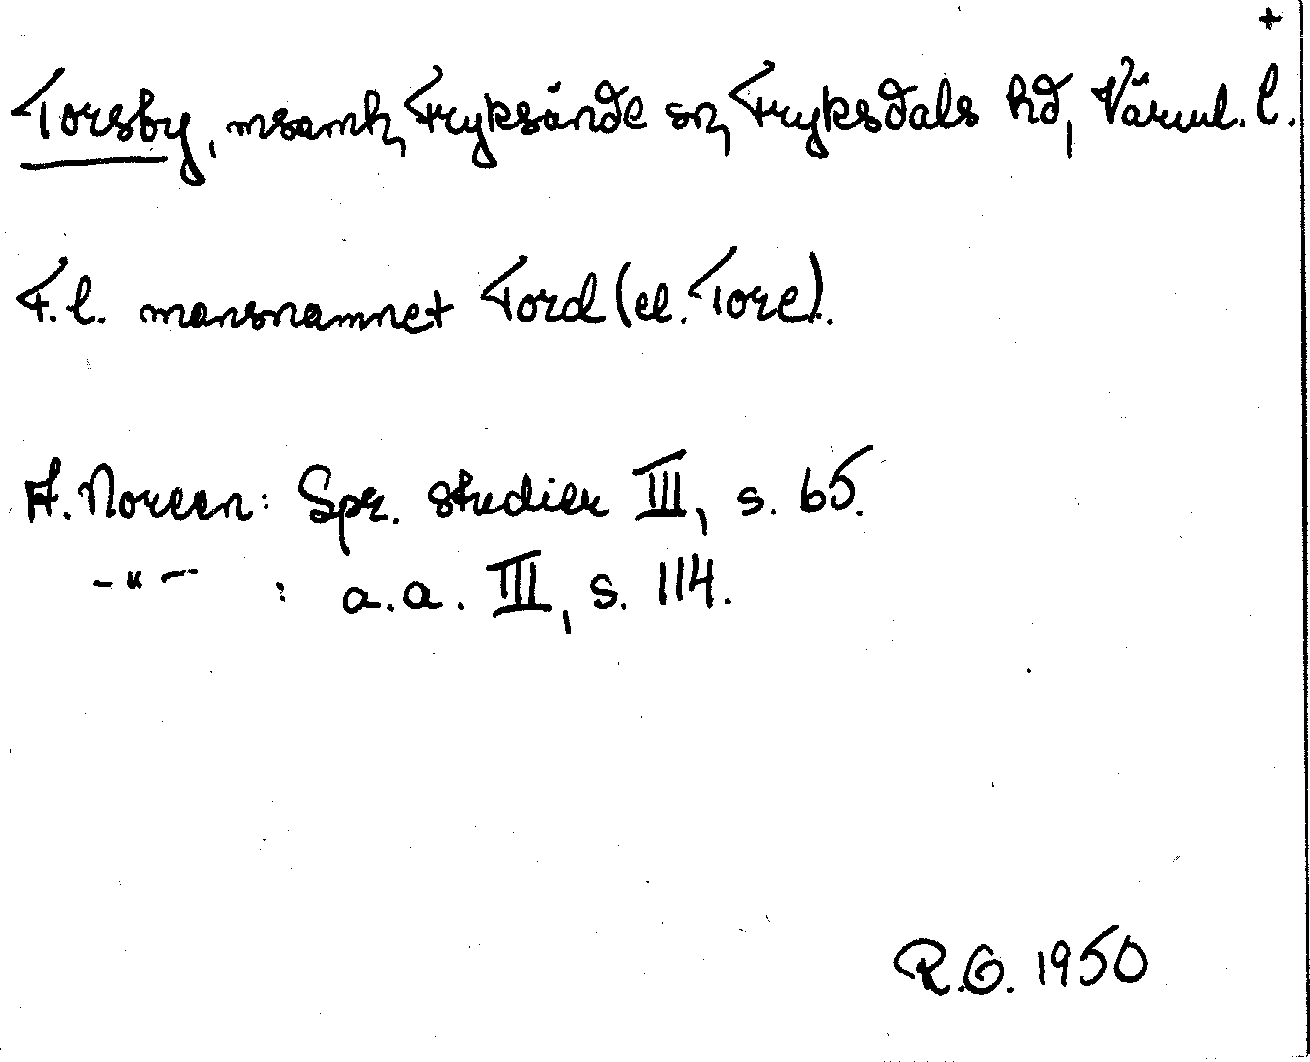 +
Torsby, msamh, Fryksände sn, Fryksdals hd, Värml. l.
F.l. mansnamnet Tord (el. Tore).
A. Noreen: Spr. studier III, s. 65.
-"- : a.a. III, s. 114.
R.G. 1950